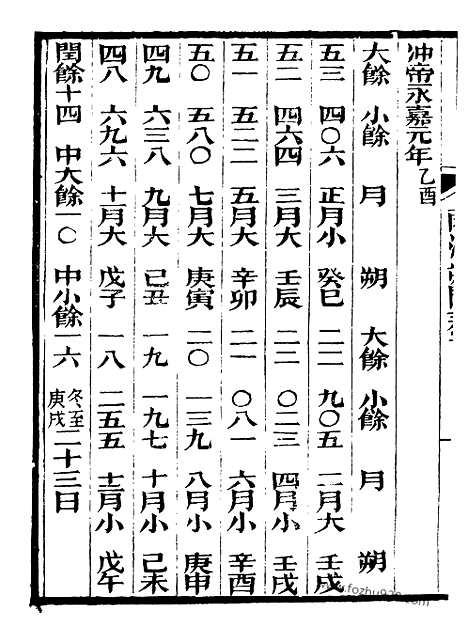 冲帝永嘉元年乙酉
大餘 小餘 月 朔 大餘 小餘 月 朔
五三 四〇六 正月小 癸巳 二二 九〇五 二月大 壬戌
五二 四六四 三月大 壬辰 二二 〇二三 四月小 壬戌
五一 五二二 五月大 辛卯 二一 〇八一 六月小 辛酉
五〇 五八〇 七月大 庚寅 二〇 一三九 八月小 庚申
四九 六三八 九月大 己丑 一九 一九七 十月小 己未
四八 六九六 十一月大 戊子 一八 二五五 十二月小 戊午
閏餘十四 中大餘一〇 中小餘一六 冬至庚戌二十三日